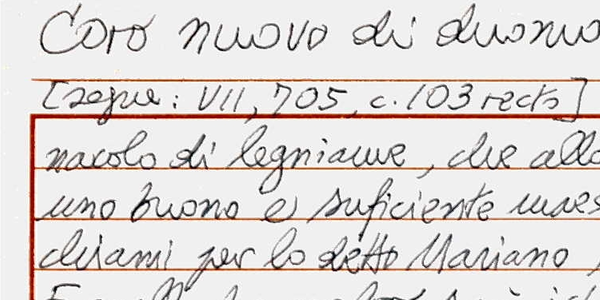 Coro nuovo di duomo
[segue: VII, 705, c. 103 recto]
nacolo di legniame, che allo
uno buono e suficiente maes
chiami per lo detto Mariano